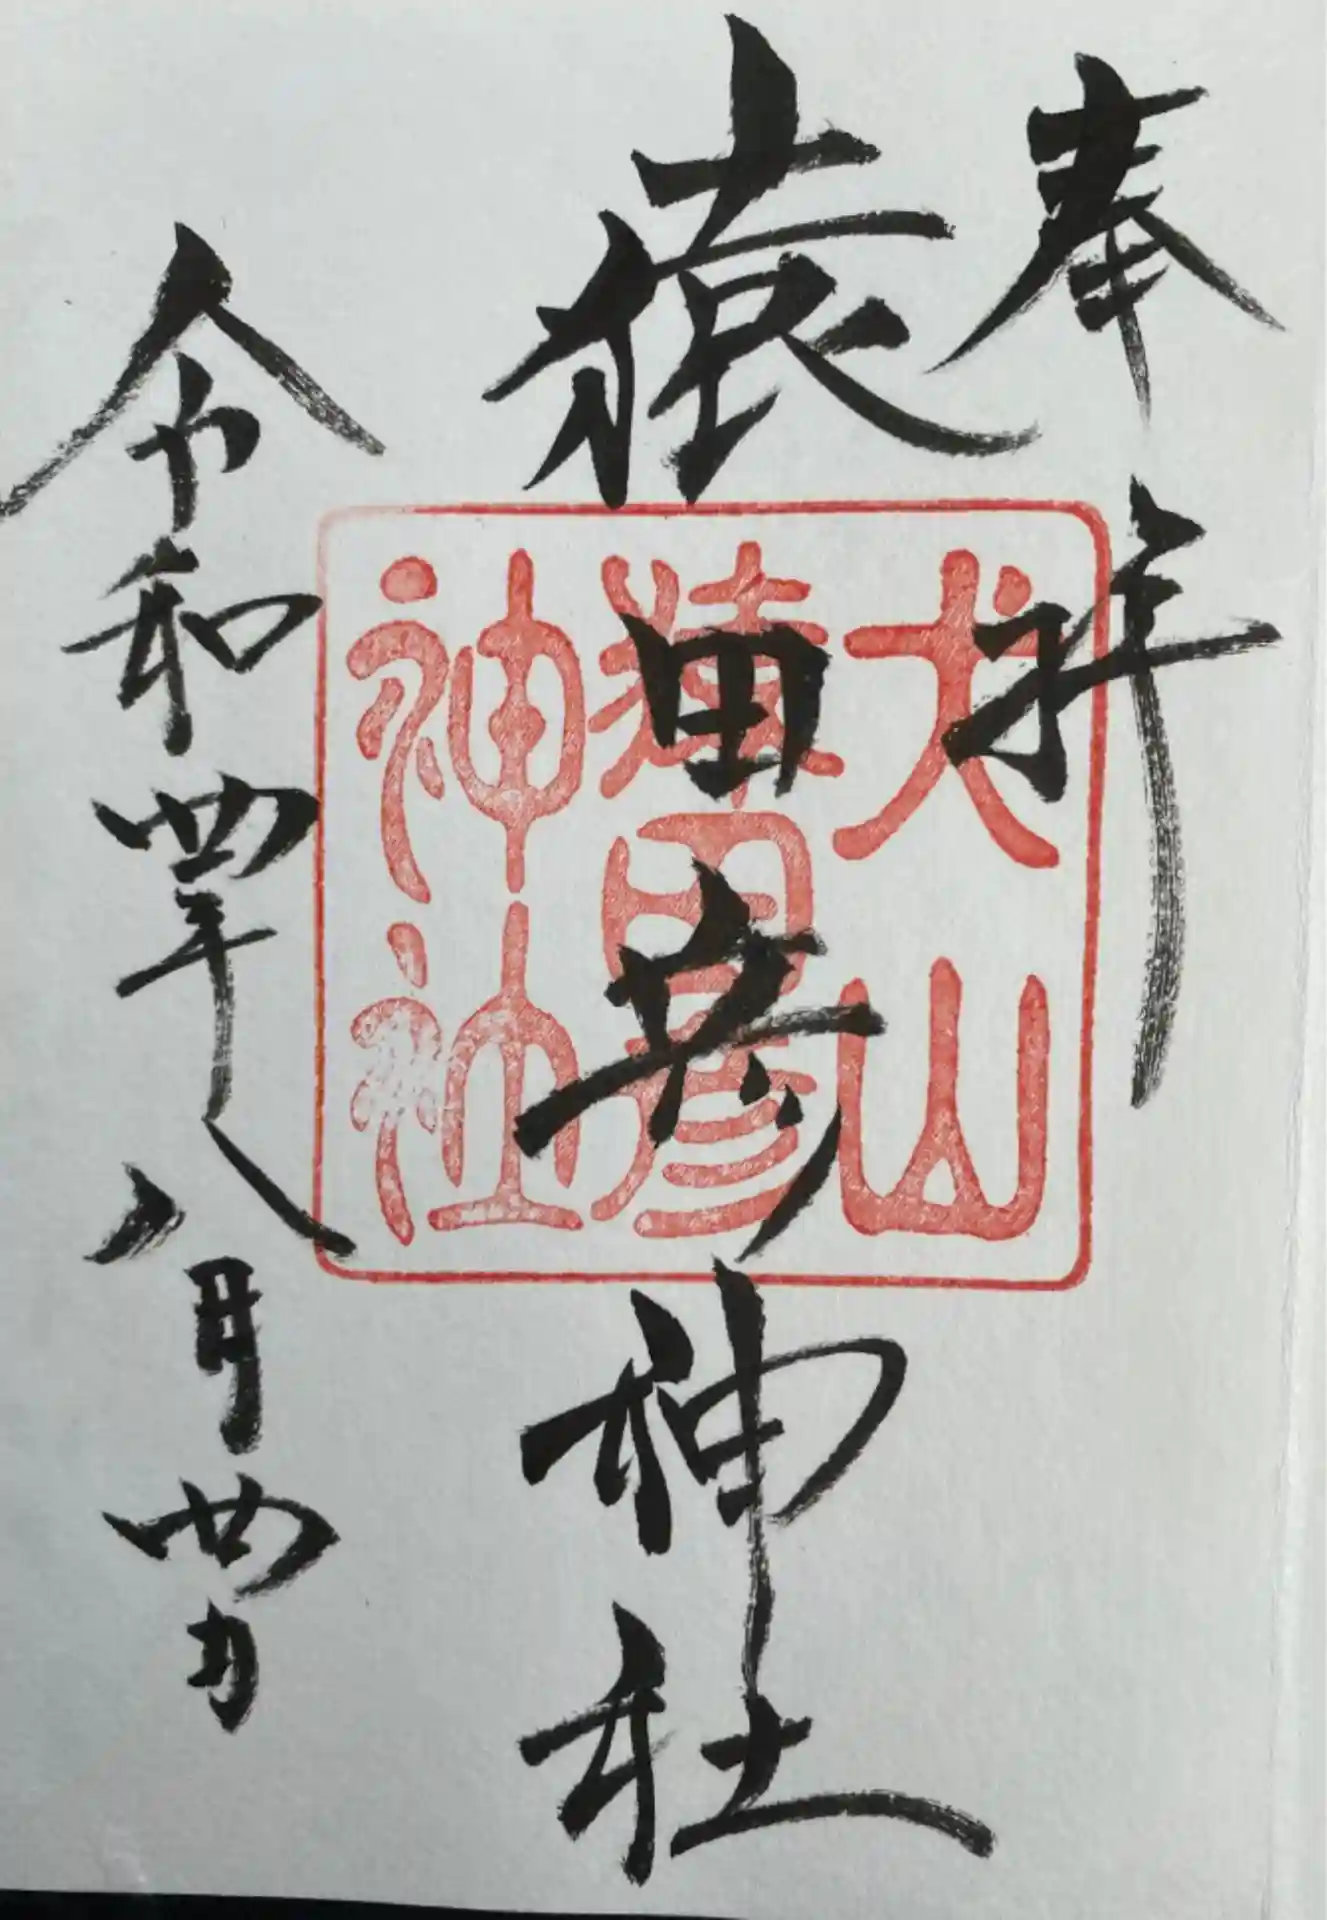 奉拝
猿田彦神社
令和四年八月四日
犬山
猿田彦
神社